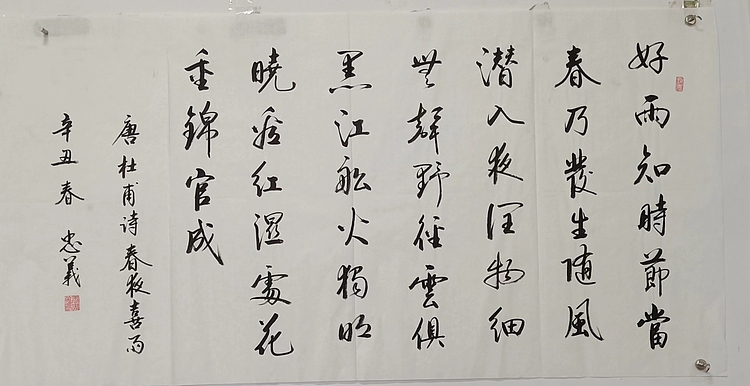 好雨知時節當
春乃發生随風
潜入夜润物细
無聲野徑雲俱
黑江船火獨明
曉看红濕處花
重錦官成
唐杜甫诗春夜喜雨
辛丑春 忠義